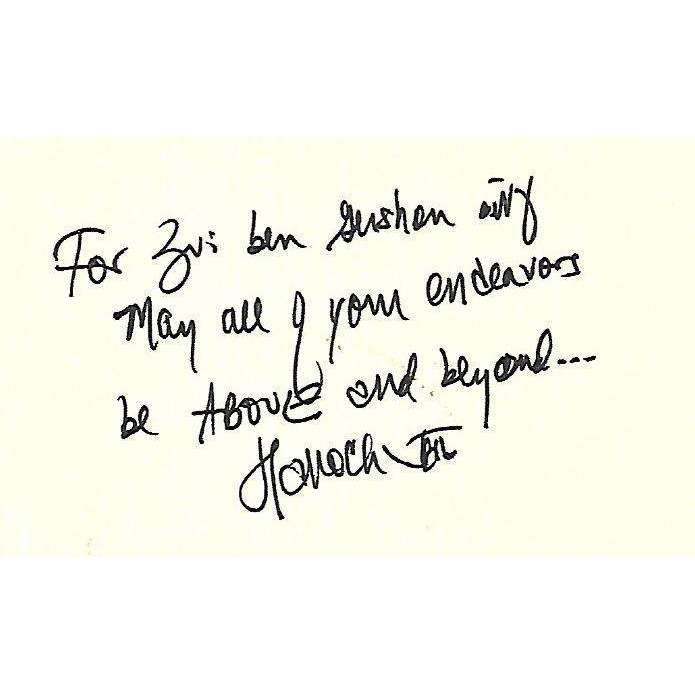 For Zvi ben Gershon
May all of your endeavors
be ABOVE and beyond...
Hanoch